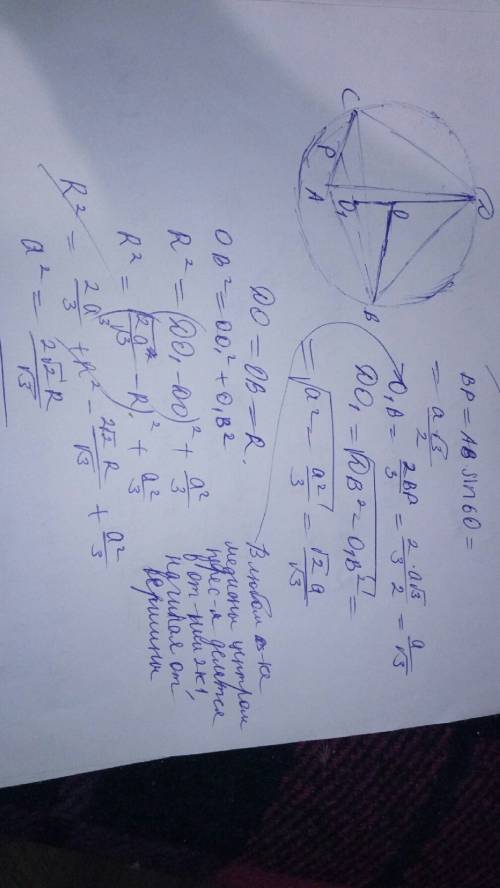 C
P
A
O₁
O
B
D
BP = AB sin 60 =
= a√3/2
O₁B = 2BP/3 = 2·a√3/3·2 = a/√3
DO₁ = √(DB² - O₁B²) =
= √(a² - a²/3) = √2a/√3
В любом
медианы центром
делятся
в от
начиная от
вершины
DO = OB = R.
OB² = OO₁² + O₁B²
R² = (DO₁ - DO)² + a²/3
R² = (√2a/√3 - R)² + a²/3
R² = 2a²/3 + R² - 2√2R/√3 + a²/3
a² = 2√2R/√3